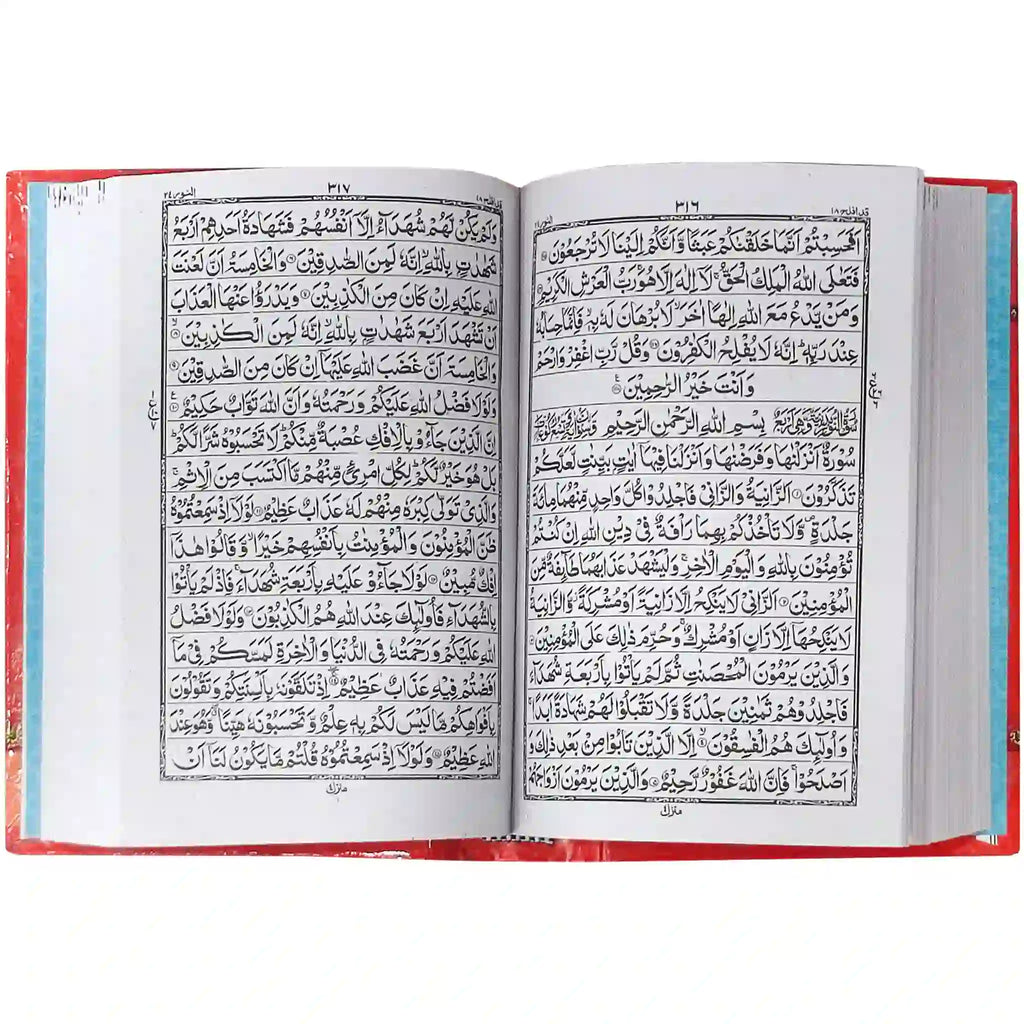 قد افلح ١٨
٣١٦
النور ٢٤
اَفَحَسِبْتُمْ اَنَّمَا خَلَقْنٰكُمْ عَبَثًا وَّاَنَّكُمْ اِلَيْنَا لَا تُرْجَعُوْنَ ١١٥
فَتَعٰلَى اللّٰهُ الْمَلِكُ الْحَقُّ ۚ لَاۤ اِلٰهَ اِلَّا هُوَ ۚ رَبُّ الْعَرْشِ الْكَرِيْمِ ١١٦
وَمَنْ يَّدْعُ مَعَ اللّٰهِ اِلٰهًا اٰخَرَ ۙ لَا بُرْهَانَ لَهٗ بِهٖ ۙ فَاِنَّمَا حِسَابُهٗ
عِنْدَ رَبِّهٖ ؕ اِنَّهٗ لَا يُفْلِحُ الْكٰفِرُوْنَ ١١٧ وَقُلْ رَّبِّ اغْفِرْ وَارْحَمْ
وَاَنْتَ خَيْرُ الرّٰحِمِيْنَ ١١٨
بِسْمِ اللّٰهِ الرَّحْمٰنِ الرَّحِيْمِ
سُوْرَةٌ اَنْزَلْنٰهَا وَفَرَضْنٰهَا وَاَنْزَلْنَا فِيْهَاۤ اٰيٰتٍۭ بَيِّنٰتٍ لَّعَلَّكُمْ
تَذَكَّرُوْنَ ١ اَلزَّانِيَةُ وَالزَّانِيْ فَاجْلِدُوْا كُلَّ وَاحِدٍ مِّنْهُمَا مِائَةَ
جَلْدَةٍ ۪ وَّلَا تَاْخُذْكُمْ بِهِمَا رَاْفَةٌ فِيْ دِيْنِ اللّٰهِ اِنْ كُنْتُمْ
تُؤْمِنُوْنَ بِاللّٰهِ وَالْيَوْمِ الْاٰخِرِ ۚ وَلْيَشْهَدْ عَذَابَهُمَا طَآئِفَةٌ مِّنَ
الْمُؤْمِنِيْنَ ٢ اَلزَّانِيْ لَا يَنْكِحُ اِلَّا زَانِيَةً اَوْ مُشْرِكَةً ؗ وَّالزَّانِيَةُ
لَا يَنْكِحُهَاۤ اِلَّا زَانٍ اَوْ مُشْرِكٌ ۚ وَحُرِّمَ ذٰلِكَ عَلَى الْمُؤْمِنِيْنَ ٣
وَالَّذِيْنَ يَرْمُوْنَ الْمُحْصَنٰتِ ثُمَّ لَمْ يَاْتُوْا بِاَرْبَعَةِ شُهَدَآءَ
فَاجْلِدُوْهُمْ ثَمٰنِيْنَ جَلْدَةً وَّلَا تَقْبَلُوْا لَهُمْ شَهَادَةً اَبَدًا ۚ
وَاُولٰٓئِكَ هُمُ الْفٰسِقُوْنَ ٤ اِلَّا الَّذِيْنَ تَابُوْا مِنْۢ بَعْدِ ذٰلِكَ وَ
اَصْلَحُوْا ۚ فَاِنَّ اللّٰهَ غَفُوْرٌ رَّحِيْمٌ ٥ وَالَّذِيْنَ يَرْمُوْنَ اَزْوَاجَهُمْ
منزل
قد افلح ١٨
٣١٧
النور ٢٤
وَلَمْ يَكُنْ لَّهُمْ شُهَدَآءُ اِلَّاۤ اَنْفُسُهُمْ فَشَهَادَةُ اَحَدِهِمْ اَرْبَعُ
شَهٰدٰتٍۭ بِاللّٰهِ ۙ اِنَّهٗ لَمِنَ الصّٰدِقِيْنَ ٦ وَالْخَامِسَةُ اَنَّ لَعْنَتَ
اللّٰهِ عَلَيْهِ اِنْ كَانَ مِنَ الْكٰذِبِيْنَ ٧ وَيَدْرَؤُا عَنْهَا الْعَذَابَ
اَنْ تَشْهَدَ اَرْبَعَ شَهٰدٰتٍۭ بِاللّٰهِ ۙ اِنَّهٗ لَمِنَ الْكٰذِبِيْنَ ٨
وَالْخَامِسَةَ اَنَّ غَضَبَ اللّٰهِ عَلَيْهَاۤ اِنْ كَانَ مِنَ الصّٰدِقِيْنَ ٩
وَلَوْلَا فَضْلُ اللّٰهِ عَلَيْكُمْ وَرَحْمَتُهٗ وَاَنَّ اللّٰهَ تَوَّابٌ حَكِيْمٌ ١٠
اِنَّ الَّذِيْنَ جَآءُوْ بِالْاِفْكِ عُصْبَةٌ مِّنْكُمْ ؕ لَا تَحْسَبُوْهُ شَرًّا لَّكُمْ ؕ
بَلْ هُوَ خَيْرٌ لَّكُمْ ؕ لِكُلِّ امْرِئٍ مِّنْهُمْ مَّا اكْتَسَبَ مِنَ الْاِثْمِ ۚ
وَالَّذِيْ تَوَلّٰى كِبْرَهٗ مِنْهُمْ لَهٗ عَذَابٌ عَظِيْمٌ ١١ لَوْلَاۤ اِذْ سَمِعْتُمُوْهُ
ظَنَّ الْمُؤْمِنُوْنَ وَالْمُؤْمِنٰتُ بِاَنْفُسِهِمْ خَيْرًا ۙ وَّقَالُوْا هٰذَاۤ
اِفْكٌ مُّبِيْنٌ ١٢ لَوْلَا جَآءُوْ عَلَيْهِ بِاَرْبَعَةِ شُهَدَآءَ ۚ فَاِذْ لَمْ يَاْتُوْا
بِالشُّهَدَآءِ فَاُولٰٓئِكَ عِنْدَ اللّٰهِ هُمُ الْكٰذِبُوْنَ ١٣ وَلَوْلَا فَضْلُ
اللّٰهِ عَلَيْكُمْ وَرَحْمَتُهٗ فِي الدُّنْيَا وَالْاٰخِرَةِ لَمَسَّكُمْ فِيْ مَاۤ
اَفَضْتُمْ فِيْهِ عَذَابٌ عَظِيْمٌ ١٤ اِذْ تَلَقَّوْنَهٗ بِاَلْسِنَتِكُمْ وَتَقُوْلُوْنَ
بِاَفْوَاهِكُمْ مَّا لَيْسَ لَكُمْ بِهٖ عِلْمٌ وَّتَحْسَبُوْنَهٗ هَيِّنًا ۖ وَّهُوَ عِنْدَ
اللّٰهِ عَظِيْمٌ ١٥ وَلَوْلَاۤ اِذْ سَمِعْتُمُوْهُ قُلْتُمْ مَّا يَكُوْنُ لَنَاۤ اَنْ
منزل